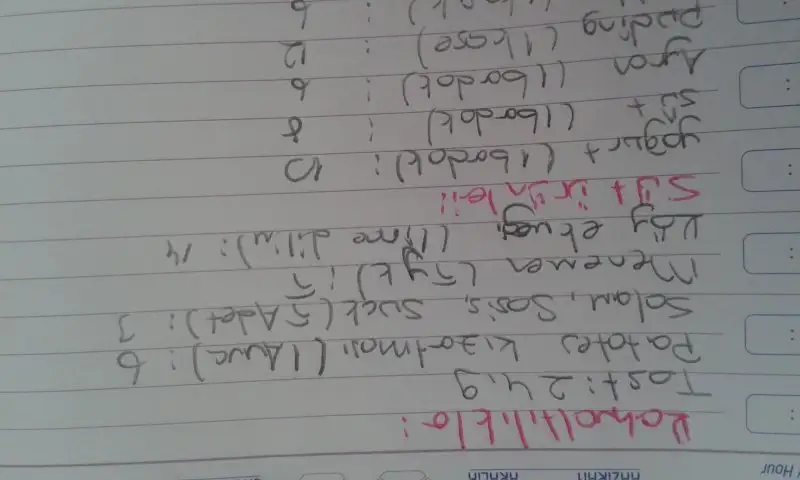 Hour
HAZİRAN
ARALIK
Kahvaltılıkla:
Tost: 24.9
Patates kızartması (1 Avuc): 6
Salam, Sosis, Sucuk (5 Adet): 3
Menemen (5 yk): 5
Köy ekmeği (1 ince dilim): 14
Süt ürünleri:
Yoğurt (1 bardak): 10
Süt (1 bardak): 8
Ayran (1 bardak): 6
Puding (1 kase): 12